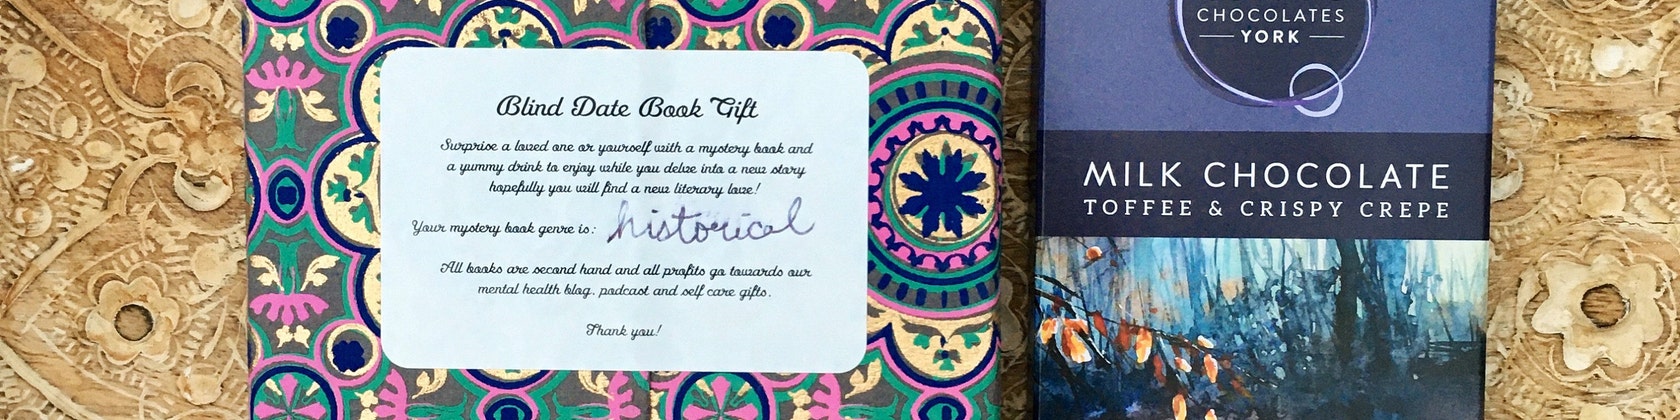 Blind Date Book Gift
Surprise a loved one or yourself with a mystery book and
a yummy drink to enjoy while you delve into a new story
hopefully you will find a new literary love!
Your mystery book genre is: historical
All books are second hand and all profits go towards our
mental health blog, podcast and self care gifts.
Thank you!
CHOCOLATES
YORK
MILK CHOCOLATE
TOFFEE & CRISPY CREPE